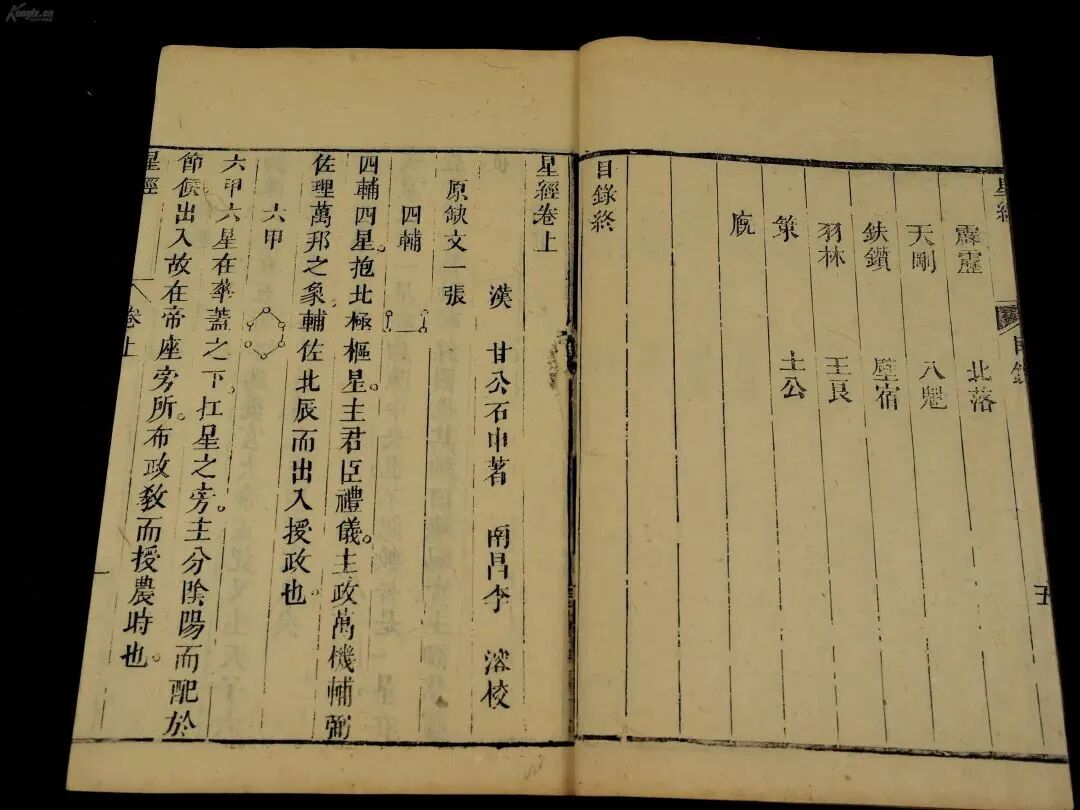 Kongfz.cn
星經 目錄 五
霹靂 北落
天剛 八魁
鈇鑽 壁宿
羽林 王良
策 土公
廐
目錄終
星經卷上
漢 甘公石申著 南昌李 溶校
原缺文一張
四輔
四輔四星。抱北極樞星。主君臣禮儀。主政萬機輔弼
佐理萬邦之象輔佐北辰而出入授政也
六甲
六甲六星在華蓋之下。扛星之旁。主分陰陽而配於
節侯出入故在帝座旁所。布政敎而授農時也。
星經 卷上